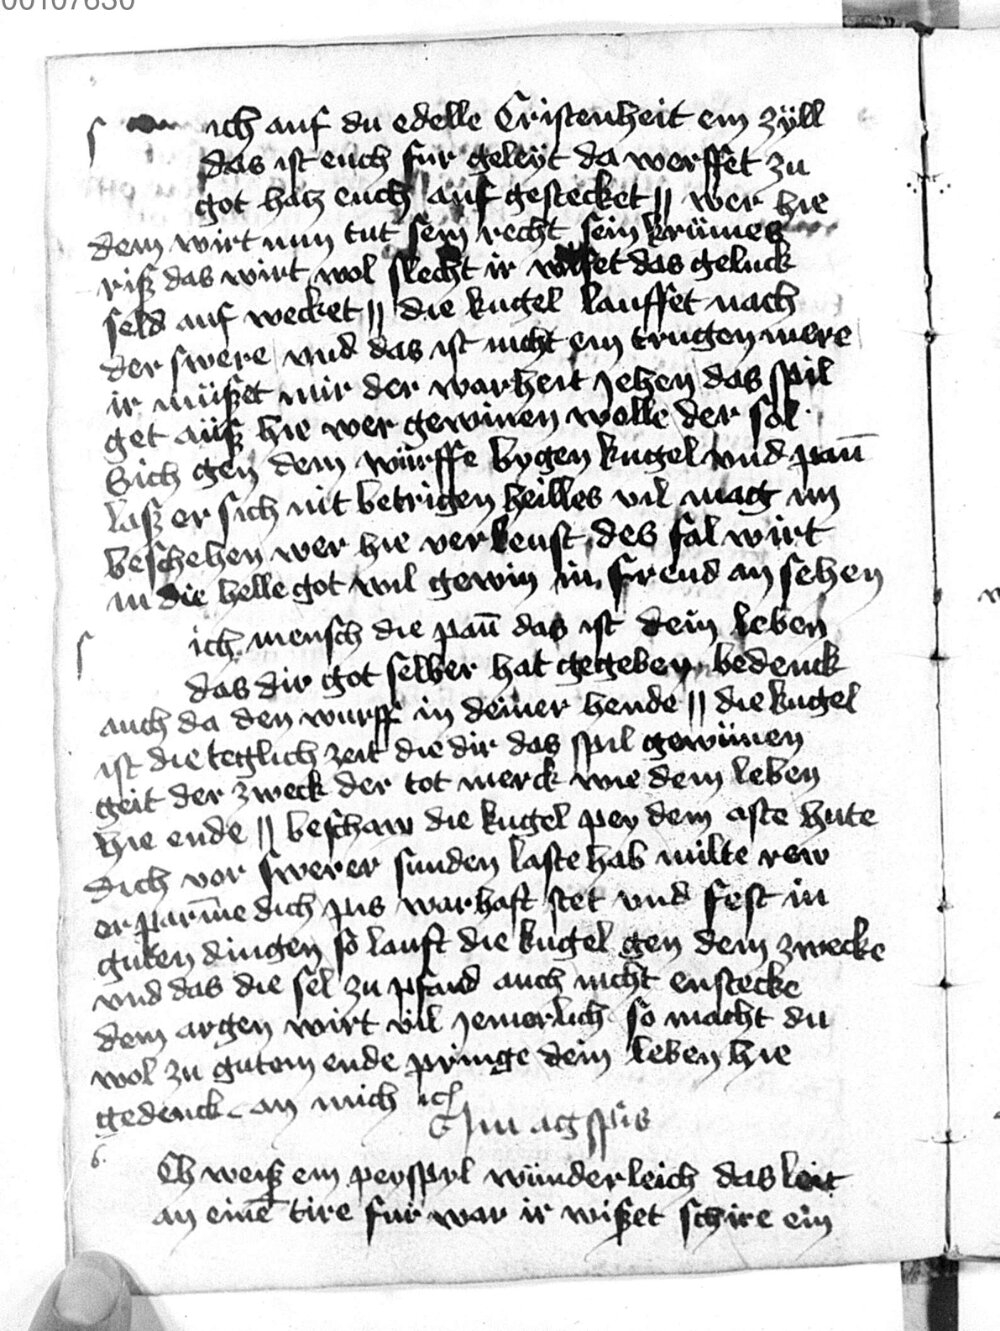 00107630
s ich auf du edelle Cristenheit ein zÿll
das ist euch fur geleÿt da werffet zu
got hatz euch auf gestecket || wer hie
dem wirt nun tut sein recht sein krümes
riß das wirt wol slecht ir wißet das geluck
seld auf wecket || die kugel lauffet nach
der swere vnd das ist nicht ein trugen mere
ir müßet mir der warheit jehen das spil
get auß hie wer gewinen welle der sol
Sich gen dem würffe bygen kugel vnd pañ
laß er sich nit betrigen heilles vil mag im
beschehen wer hie verleust des sal wirt
in die helle got wil gewin in freud an sehen
s ich mensch die pañ das ist dein leben
das dir got selber hat gegeben bedenck
auch da den wurff in deiner hende || die kugel
ist die teglich zeit die dir das spil gewünen
geit der zweck der tot merck wie dem leben
hie ende || beschaw die kugel pey dem aste hute
dich vor swerer sunden laste hab milte rew
erparme dich pis warhaft stet vnd fest in
guten dingen so lauft die kugel gen dem zwecke
vnd das die sel zu pfand auch nicht enstecke
dem argen wirt vil jemerlich so macht du
wol zu gutem ende pringe dein leben hie
gedenck an mich ich
Ch weiß ein peyspyl wünderleich das leit
an eine tire fur war ir wißet schire ein